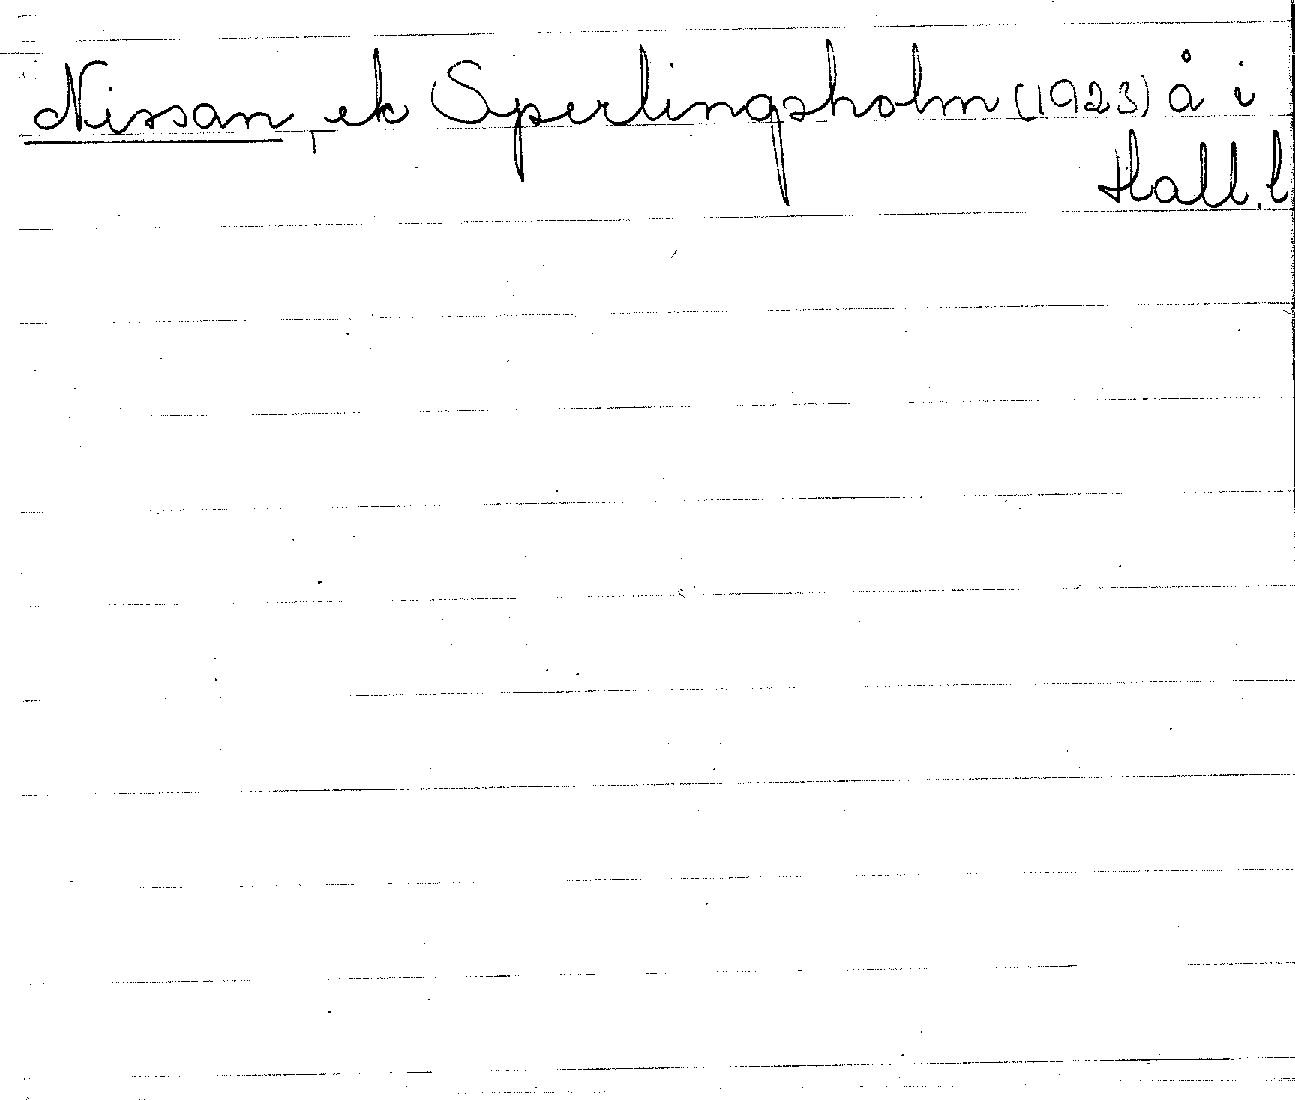 Nissan, ek Sperlingsholm (1923) å i
Hall. l